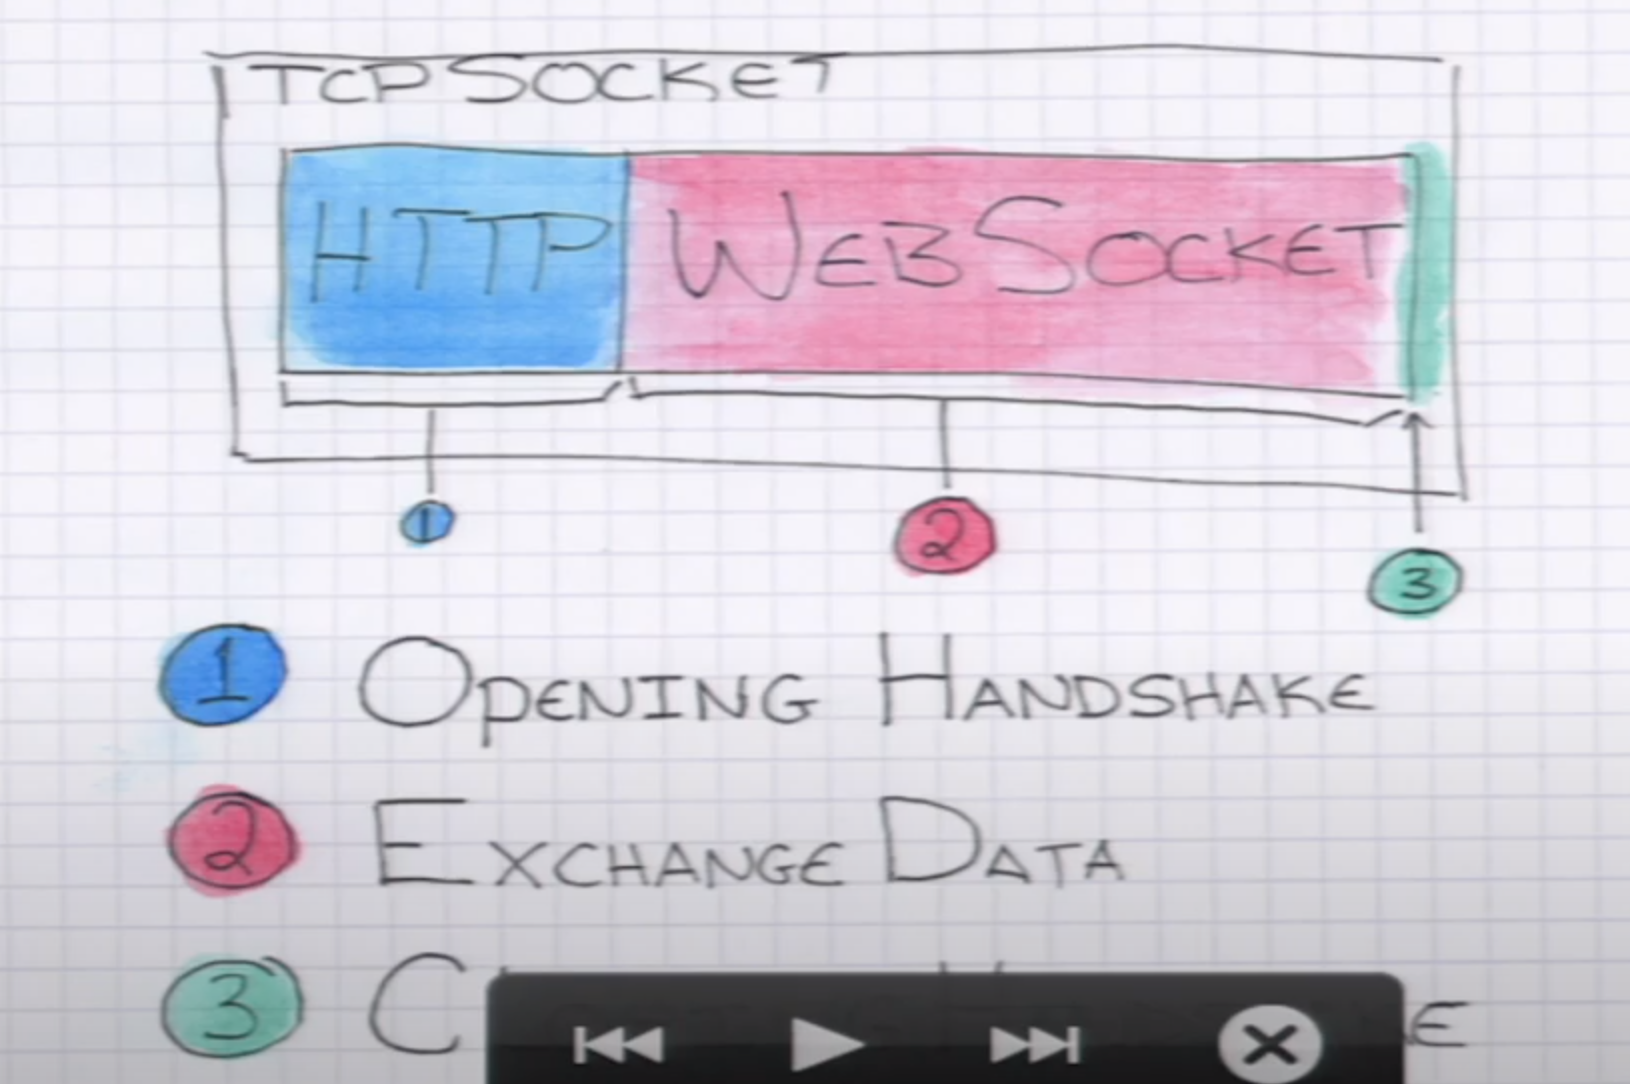 TCP SOCKET
HTTP WEBSOCKET
1 2 3
1 OPENING HANDSHAKE
2 EXCHANGE DATA
3